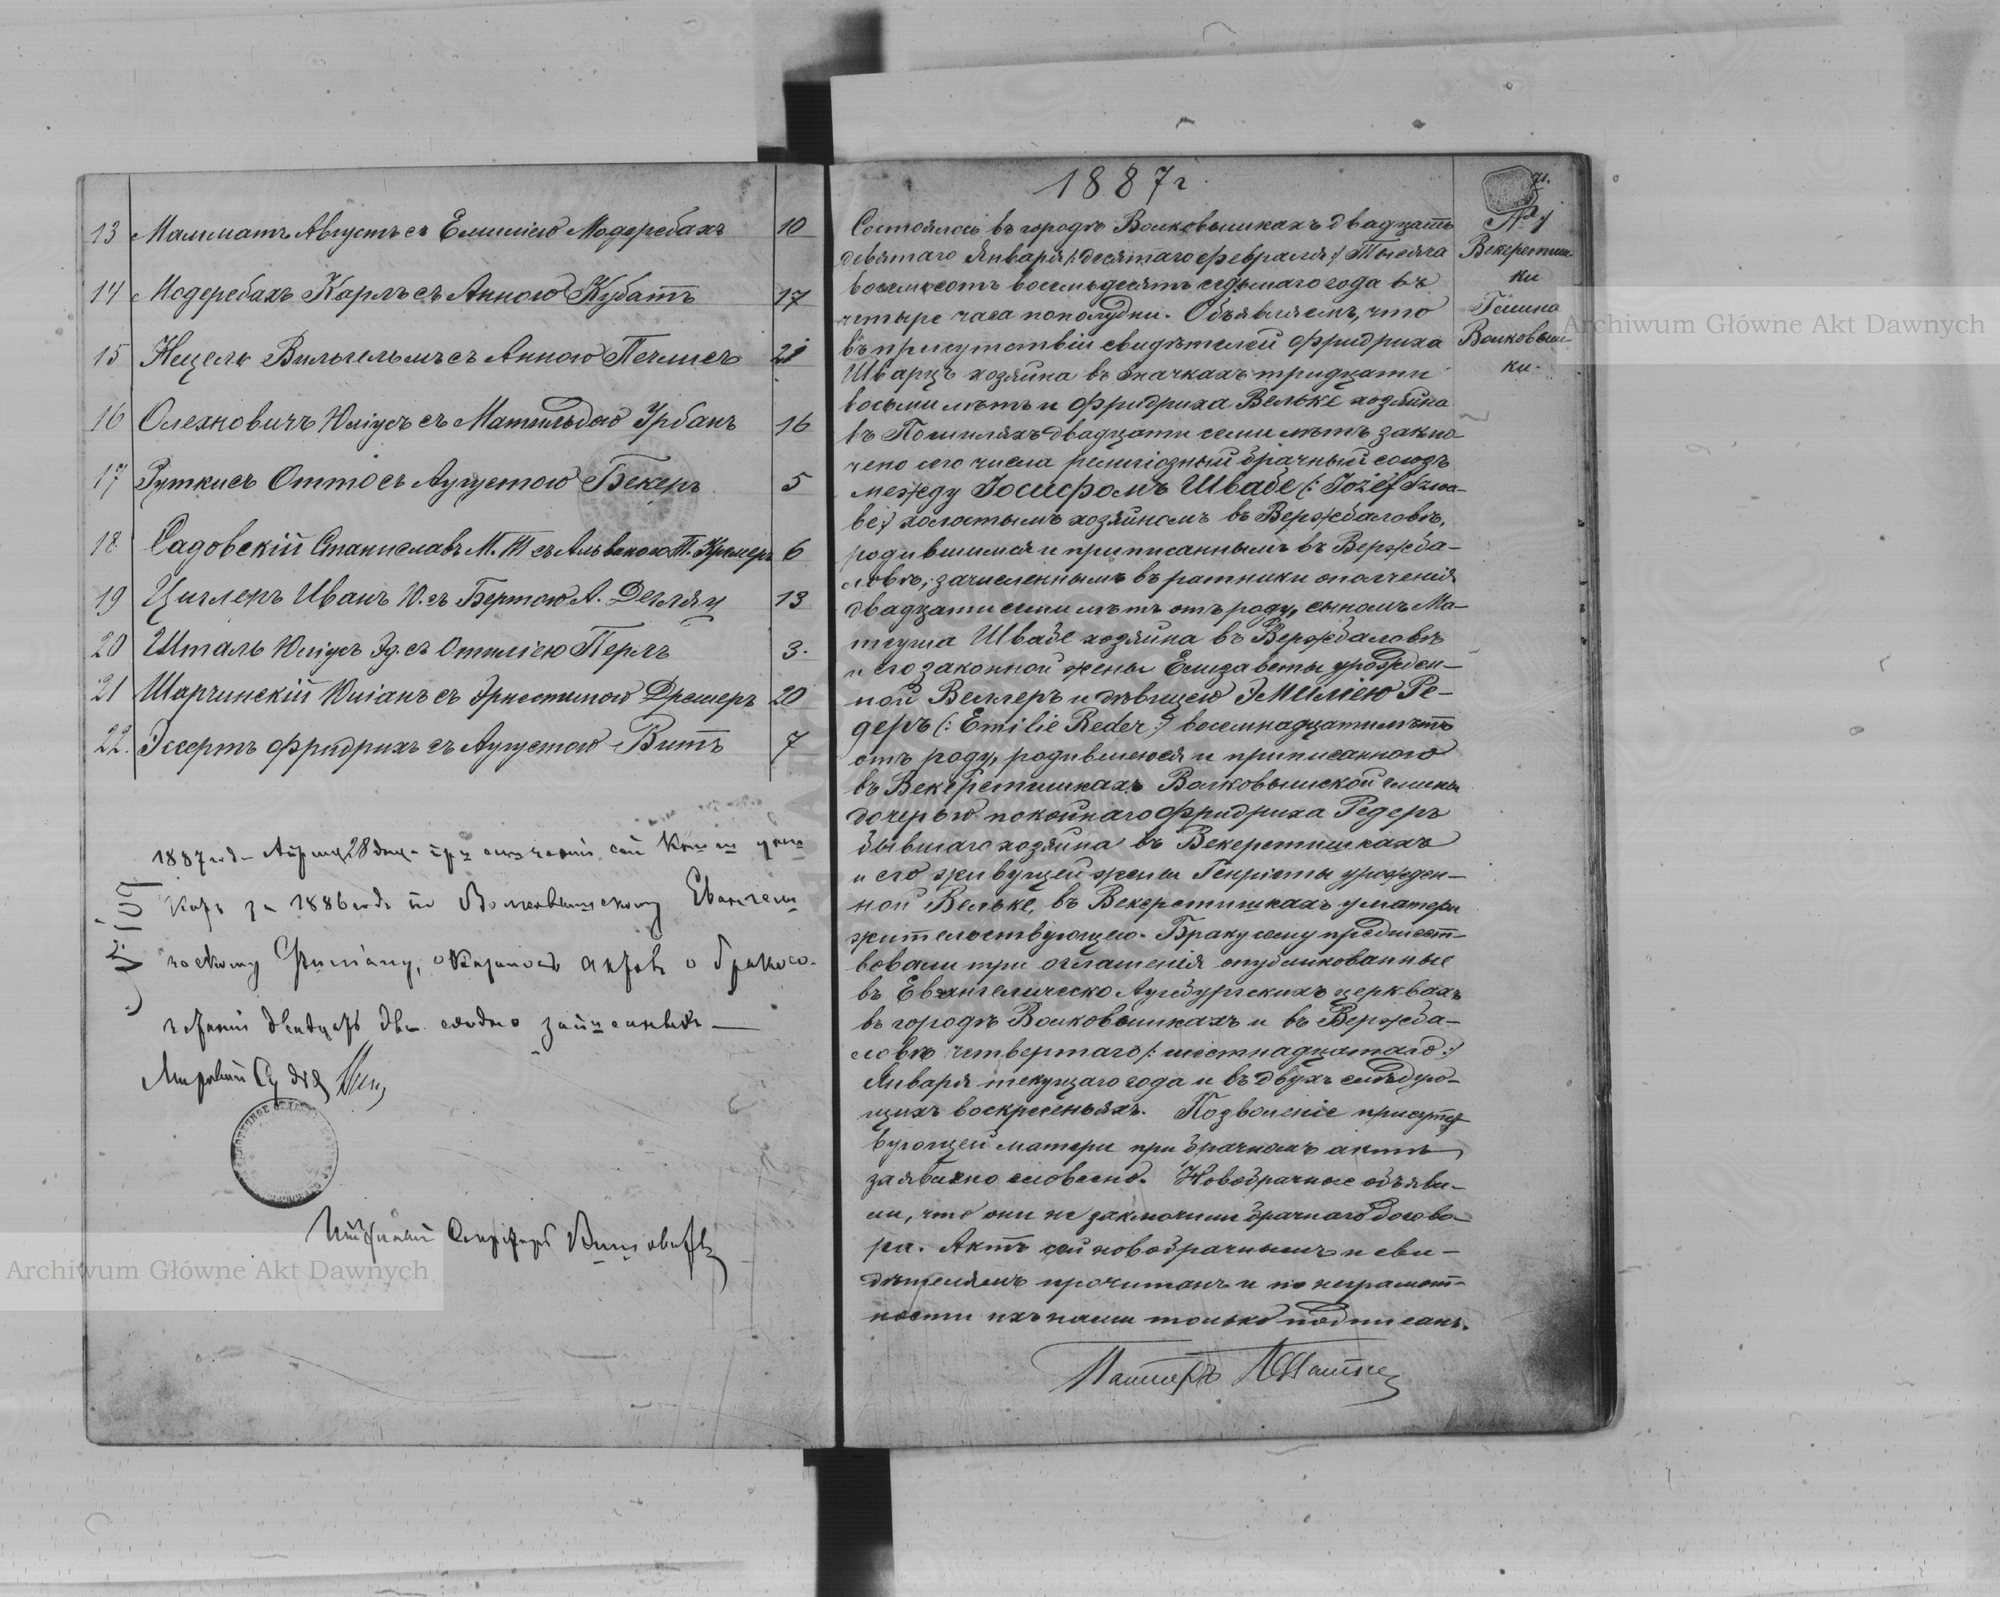 13 Малиматъ Августъ съ Емилiею Модеребахъ 10
14 Модеребахъ Карлъ съ Анною Кубатъ 17
15 Нецель Вильгельмъ съ Анною 21
16 Олехновичъ Юлiусъ съ Матильдою Урбанъ 16
17 Руткисъ Отто съ Аугустою Бекеръ 5
18 Садовскiй Станиславъ М. Ю съ Альвиною Т. Кремеръ 6
19 Циглеръ Иванъ Ю. съ Бертою А. 13
20 Шталь Юлiусъ Эд. съ Отилiею Перлъ 3.
21 Шарчинскiй Юлiанъ съ Эрнестиною Дрешеръ 20
22. Эссертъ Фридрихъ съ Аугустою Витъ 7
1887 год Апреля 28 дня при сей
за 1886 годъ по Волковышскому Евангели
ческому оказалось актовъ о бракосо
четанiи двадцать два
Мировой Судья
Archiwum Główne Akt Dawnych
1887 г.
71.
№ 1
Векеретиш
ки
Гмина
Волковыш
ки.
Archiwum Główne Akt Dawnych
Состоялось въ городѣ Волковышкахъ двадцать
девятаго Января /: десятаго Февраля :/ Тысяча
восемьсотъ восемьдесятъ седьмаго года въ
четыре часа пополудни. Объявляемъ, что
въ присутствiи свидѣтелей Фридриха
Шварцъ хозяина въ Значкахъ тридцати
восьми лѣтъ и Фридриха Вельке хозяина
въ двадцати семи лѣтъ заклю-
чено сего числа религiозный брачный союзъ
между Iосифомъ Швабе (: Jozef Szwa-
be :) холостымъ хозяиномъ въ Вержбаловѣ,
родившимся и приписаннымъ въ Вержба-
ловѣ, зачисленнымъ въ ратники ополченiя
двадцати семи лѣтъ отъ роду, сыномъ Ма-
теуша Швабе хозяина въ Вержбаловѣ
и его законной жены Елизаветы урожден-
ной Веллеръ и дѣвицею Эмилiею Ре-
деръ (: Emilie Reder :) восемнадцати лѣтъ
отъ роду, родившеюся и приписанною
въ Векеретишкахъ Волковышской гмины
дочерью покойнаго Фридриха Редеръ
бывшаго хозяина въ Векеретишкахъ
и его живущей жены Генрiеты урожден-
ной Вельке, въ Векеретишкахъ у матери
жительствующею. Браку сему предшест-
вовали три оглашенiя опубликованные
въ Евангелическо Аугсбургскихъ церквахъ
въ городѣ Волковышкахъ и въ Вержба-
ловѣ четвертаго /: шестнадцатаго :/
Января текущаго года и въ двухъ слѣдую-
щихъ воскресеньяхъ. Позволенiе присутст
вующей матери при брачномъ актѣ
заявлено словесно. Новобрачные объяви-
ли, что они не заключили брачнаго догово-
ра. Актъ сей новобрачнымъ и сви-
дѣтелямъ прочитанъ и по неграмот-
ности ихъ нами только подписанъ.
Пасторъ